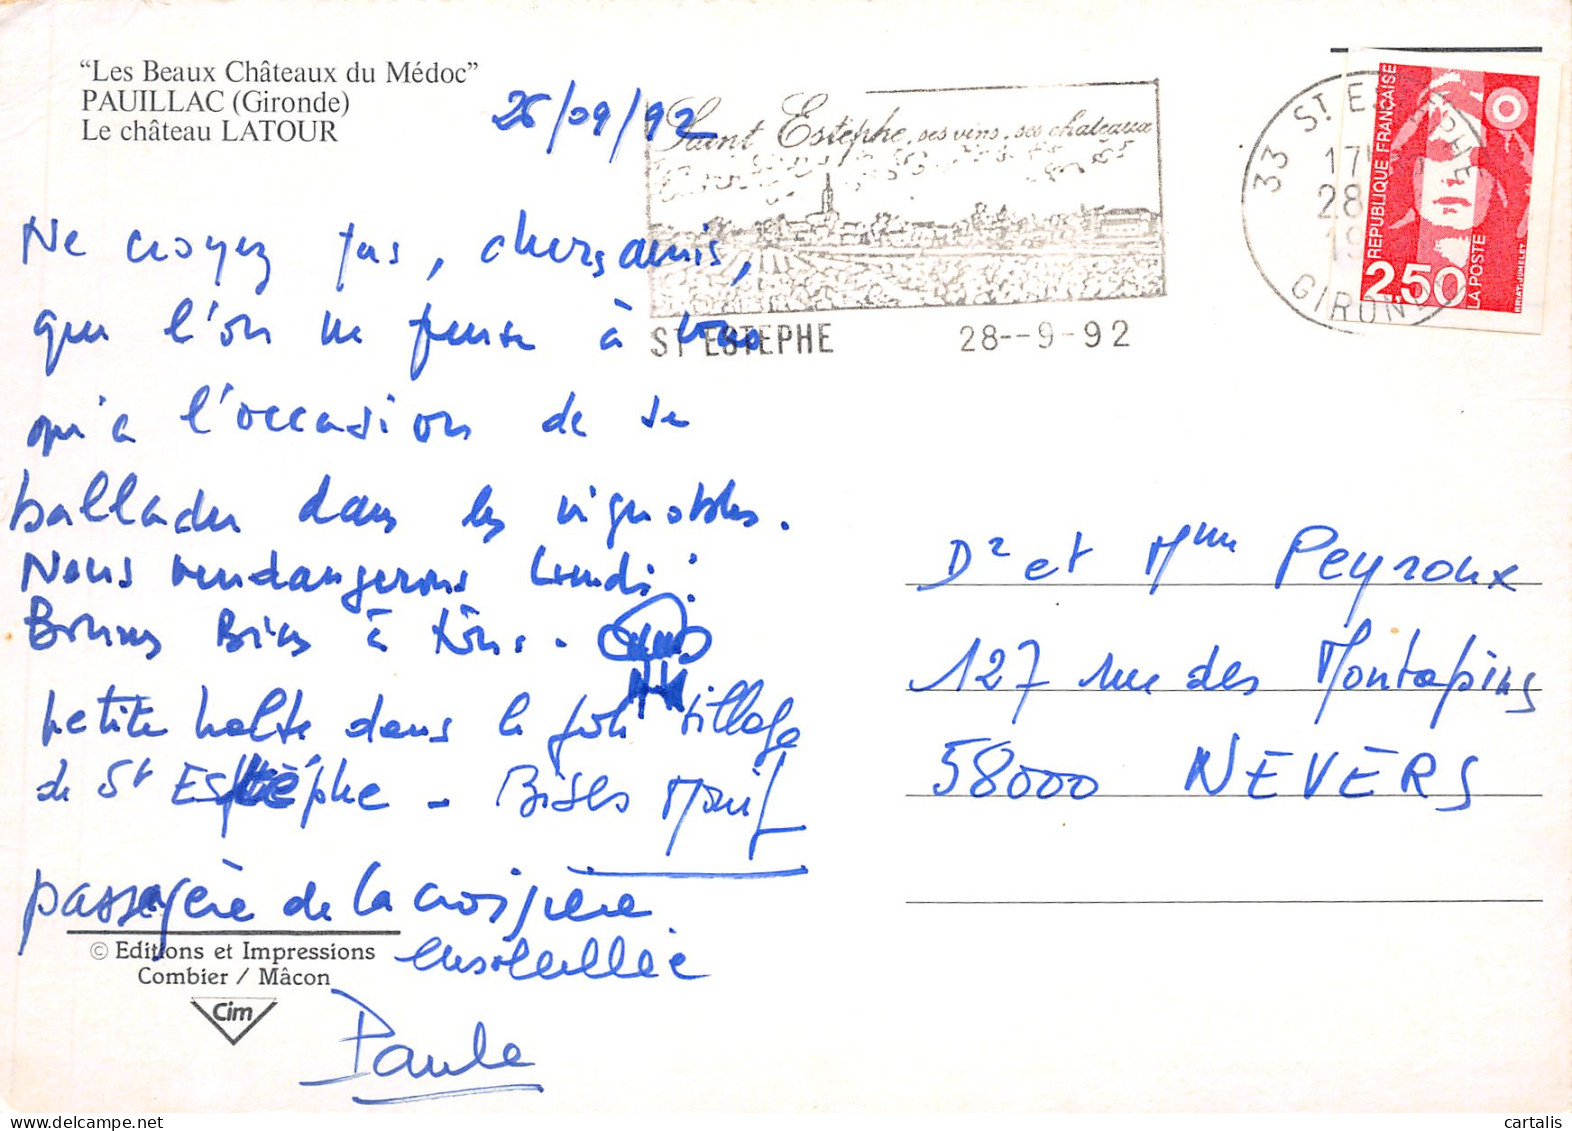 "Les Beaux Châteaux du Médoc"
PAUILLAC (Gironde)
Le château LATOUR
26/09/92
Saint Estèphe, ses vins, ses chateaux
ST ESTEPHE 28--9-92
33 ST ESTEPHE
17
28
19
GIRONDE
REPUBLIQUE FRANÇAISE
2,50
LA POSTE
BRIAT-JUMELET
Ne croyez pas, chers amis,
que l'on ne pense à vous
qu'à l'occasion de se
ballader dans les vignobles.
Nous vendangerons Lundi!
Bonnes Bises à tous.
petite halte dans le joli village
de St Estèphe - Bises
passagère de la croisière
ensoleillée
Paule
Dr et Mme Peyroux
127 rue des Montapins
58000 NEVERS
© Editions et Impressions
Combier / Mâcon
Cim
cartalis